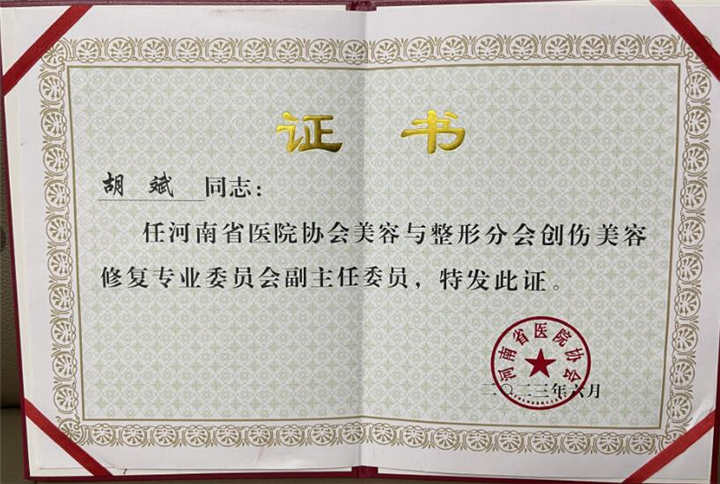 证 书
胡斌 同志：
任河南省医院协会美容与整形分会创伤美容
修复专业委员会副主任委员，特发此证。
河南省医院协会
二〇二三年六月